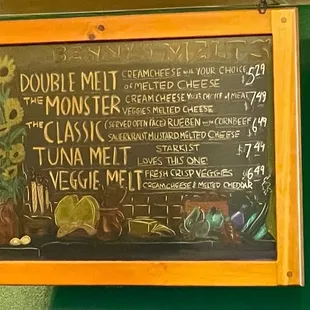 BENNY'S MELTS
DOUBLE MELT CREAMCHEESE WITH YOUR CHOICE OF MELTED CHEESE $5.29
THE MONSTER CREAMCHEESE YOUR CHOICE OF MEAT VEGGIES MELTED CHEESE $7.49
THE CLASSIC (SERVED OPEN FACED) RUEBEN WITH CORNBEEF SAUERKRAUT MUSTARD MELTED CHEESE $6.49
TUNA MELT STARKIST LOVES THIS ONE $7.49
VEGGIE MELT FRESH CRISP VEGGIES CREAMCHEESE & MELTED CHEDDAR $6.49